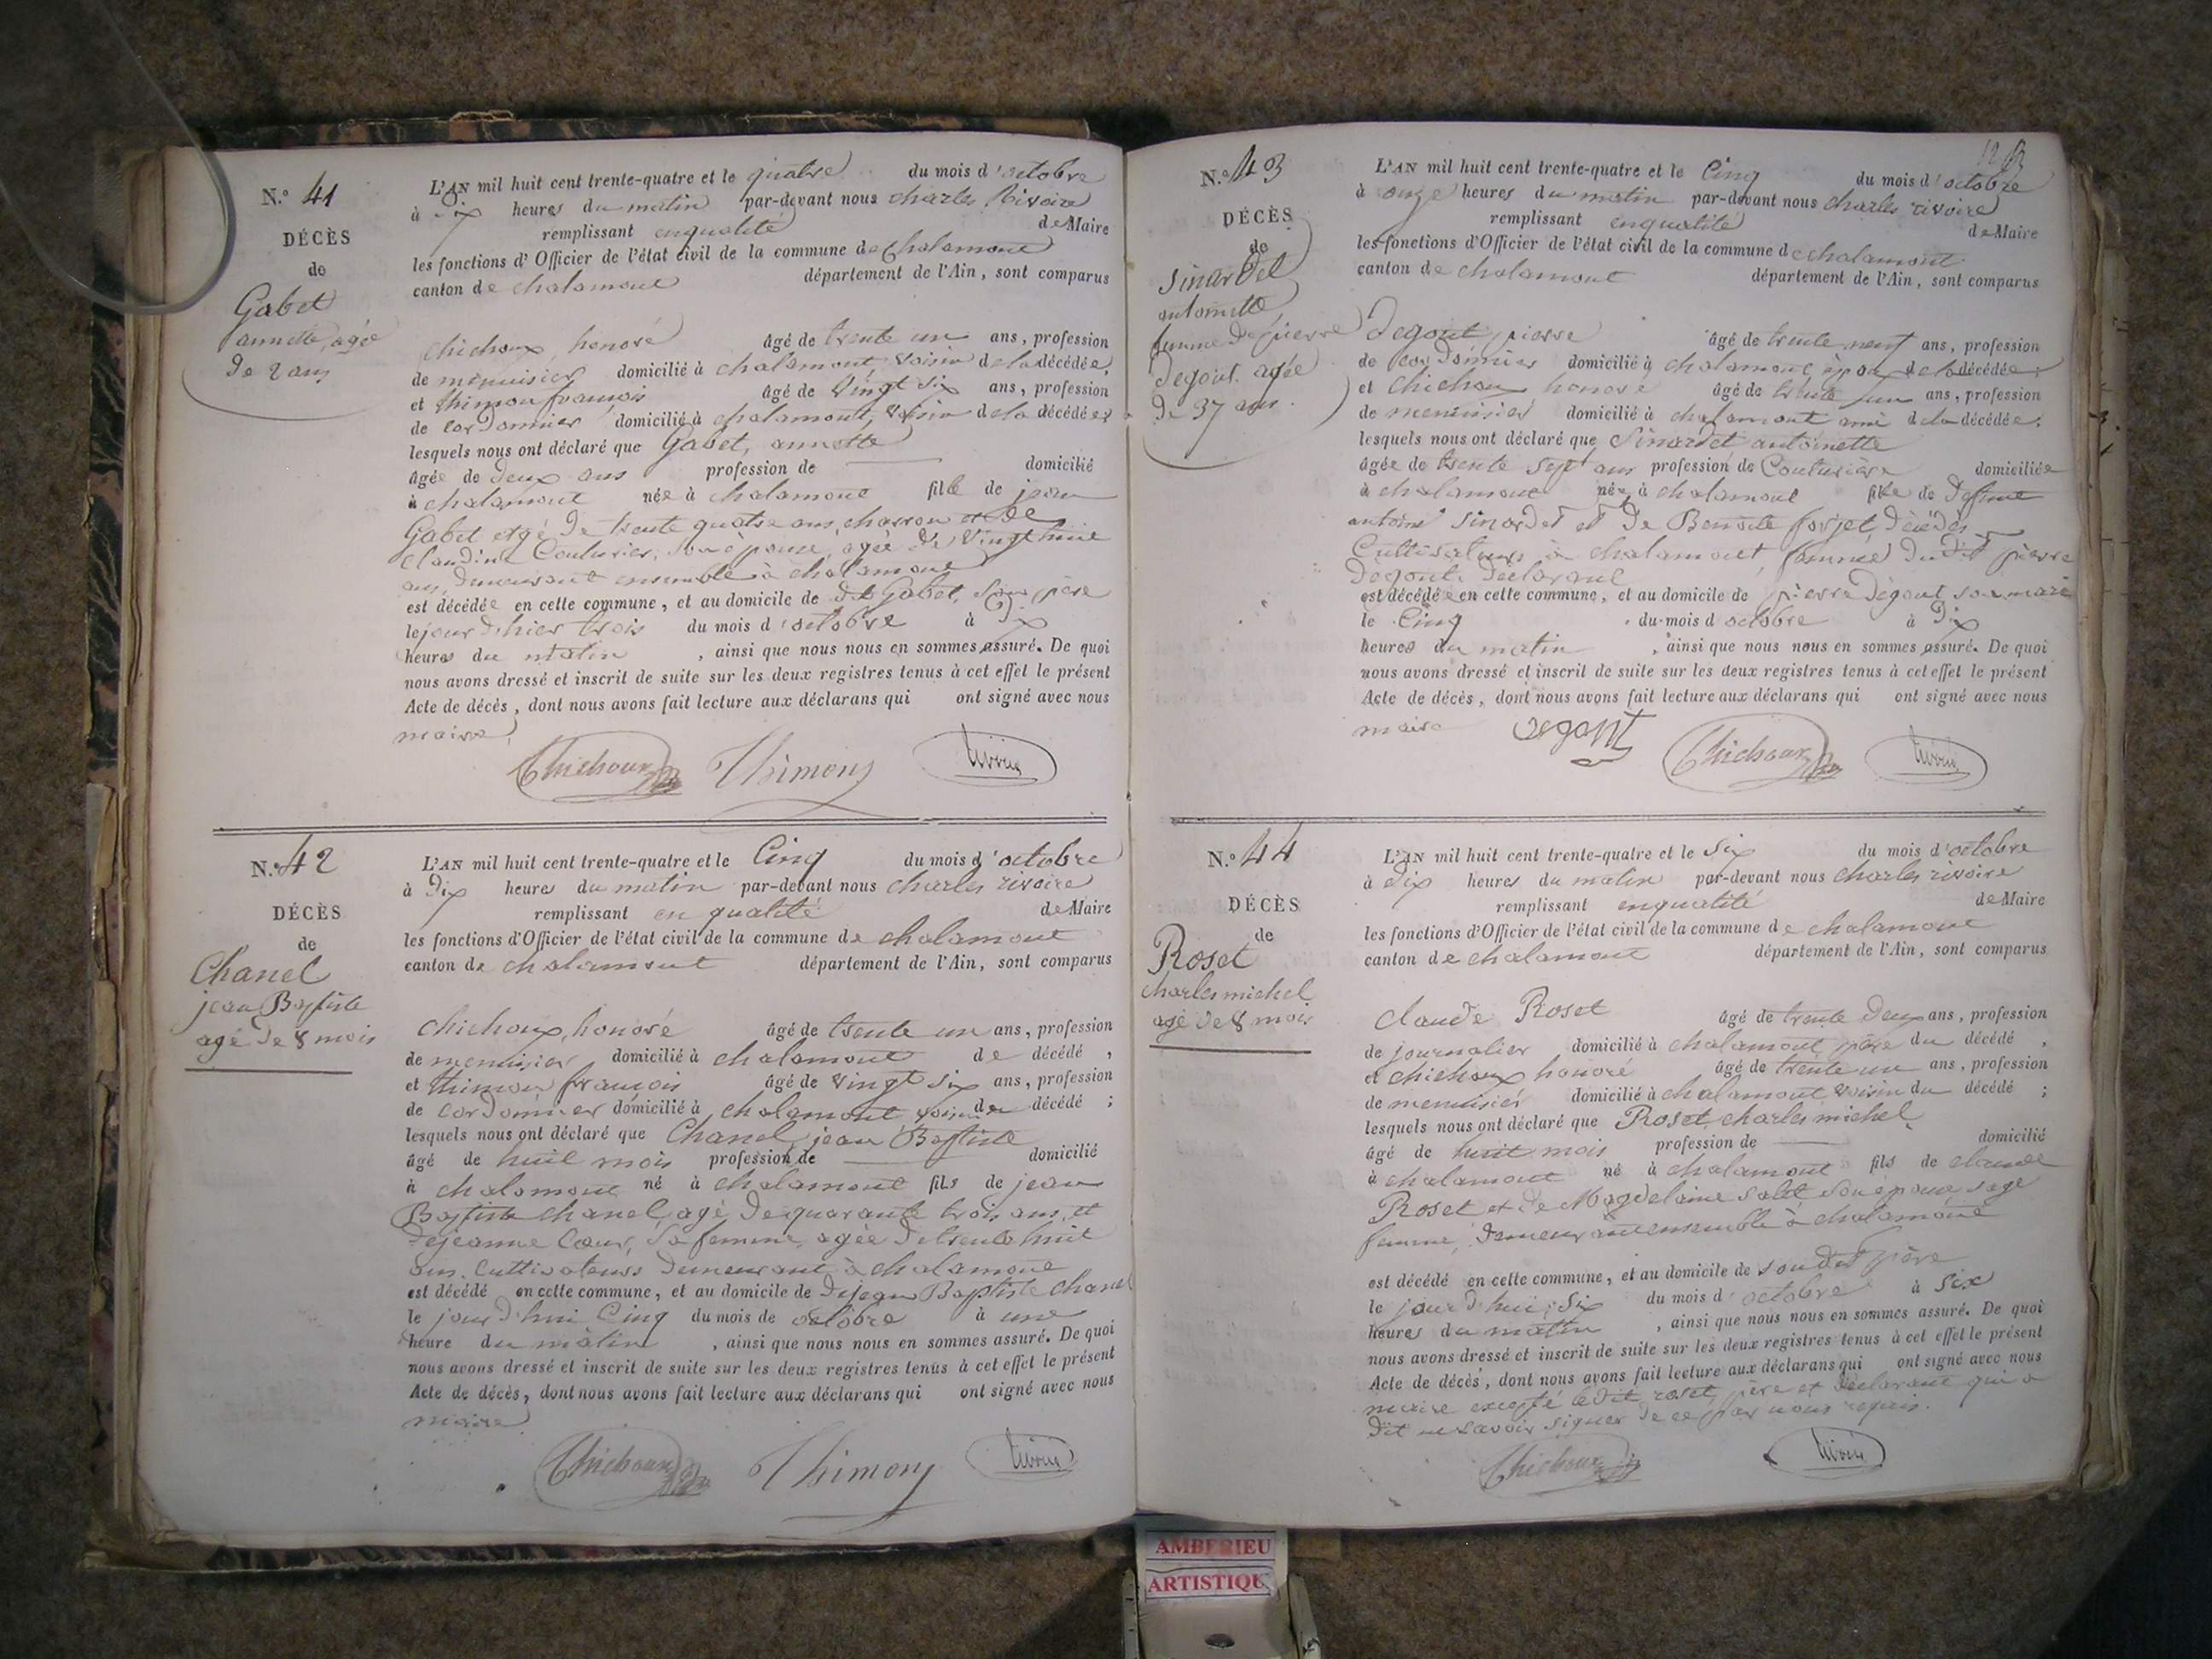 N.o 41
DÉCÈS
de
Gabet
annette, agée
de 2 ans
L'AN mil huit cent trente-quatre et le quatre du mois d'octobre
à dix heures du matin par-devant nous charles Rivoire
remplissant enqualité de Maire
les fonctions d'Officier de l'état civil de la commune de Chalamont
canton de chalamont département de l'Ain, sont comparus
chichoux, honoré âgé de trente un ans, profession
de menuisier domicilié à chalamont, voisin de la décédée,
et thimon françois âgé de vingt six ans, profession
de cordonnier domicilié à chalamont, voisin de la décédée;
lesquels nous ont déclaré que Gabet, annette
âgée de deux ans profession de domicilié
à chalamont née à chalamont fille de jean
Gabet agé de trente quatre ans, charron et de
claudine Couturier, son épouse, agée de vingt huit
ans, demeurant ensemble à chalamont
est décédée en cette commune, et au domicile de dt Gabet, son père
le jour d'hier trois du mois d'octobre à Dix
heures du matin, ainsi que nous nous en sommes assuré. De quoi
nous avons dressé et inscrit de suite sur les deux registres tenus à cet effet le présent
Acte de décès, dont nous avons fait lecture aux déclarans qui ont signé avec nous
maire
Chichoux Thimon
N.o 42
DÉCÈS
de
Chanel
jean Baptiste
agé de 8 mois
L'AN mil huit cent trente-quatre et le Cinq du mois d'octobre
à Dix heures du matin par-devant nous charles rivoire
remplissant en qualité de Maire
les fonctions d'Officier de l'état civil de la commune de chalamont
canton de chalamont département de l'Ain, sont comparus
chichoux, honoré âgé de trente un ans, profession
de menuisier domicilié à chalamont de décédé,
et thimon françois âgé de vingt six ans, profession
de cordonnier domicilié à chalamont, voisin du décédé;
lesquels nous ont déclaré que Chanel, jean Baptiste
âgé de huit mois profession de domicilié
à chalamont né à chalamont fils de jean
Baptiste chanel, agé de quarante trois ans, et
de jeanne Cœur, sa femme, agée de trente huit
ans. Cultivateurs demeurant à chalamont
est décédé en cette commune, et au domicile de dejean Baptiste chanel
le jour d'hui Cinq du mois de octobre à une
heure du matin, ainsi que nous nous en sommes assuré. De quoi
nous avons dressé et inscrit de suite sur les deux registres tenus à cet effet le présent
Acte de décès, dont nous avons fait lecture aux déclarans qui ont signé avec nous
maire
Chichoux Thimon
N.o 43
DÉCÈS
de
Sinardet
antoinette,
femme de pierre
Degout. agée
de 37 ans.
L'AN mil huit cent trente-quatre et le Cinq du mois d'octobre
à onze heures du matin par-devant nous charles rivoire
remplissant enqualité de Maire
les fonctions d'Officier de l'état civil de la commune de chalamont
canton de chalamont département de l'Ain, sont comparus
Degout, pierre âgé de trente neuf ans, profession
de cordonnier domicilié à chalamont, époux de la décédée;
et chichoux honoré âgé de trente un ans, profession
de menuisier domicilié à chalamont ami de la décédée;
lesquels nous ont déclaré que Sinardet antoinette
âgée de trente sept ans profession de Couturière domiciliée
à chalamont née à chalamont fille de Defunt
antoine Sinardet et de Benoite forjet, décédés
Cultivateurs à chalamont, femme dudit pierre
Degout, déclarant
est décédée en cette commune, et au domicile de pierre Degout son mari
le Cinq du mois d octobre à Dix
heures du matin, ainsi que nous nous en sommes assuré. De quoi
nous avons dressé et inscrit de suite sur les deux registres tenus à cet effet le présent
Acte de décès, dont nous avons fait lecture aux déclarans qui ont signé avec nous
maire
degout Chichoux
N.o 44
DÉCÈS
de
Roset
charles michel
agé de 8 mois
L'AN mil huit cent trente-quatre et le Six du mois d'octobre
à dix heures du matin par-devant nous charles rivoire
remplissant enqualité de Maire
les fonctions d'Officier de l'état civil de la commune de chalamont
canton de chalamont département de l'Ain, sont comparus
claude Roset âgé de trente deux ans, profession
de journalier domicilié à chalamont, père du décédé,
et chichoux honoré âgé de trente un ans, profession
de menuisier domicilié à chalamont, voisin du décédé;
lesquels nous ont déclaré que Roset, charles michel
âgé de huit mois profession de domicilié
à chalamont né à chalamont fils de claude
Roset et de Magdelaine son épouse, sage
femme, demeurant ensemble à chalamont
est décédé en cette commune, et au domicile de son dit père
le jour d'hui, six du mois d'octobre à six
heures du matin, ainsi que nous nous en sommes assuré. De quoi
nous avons dressé et inscrit de suite sur les deux registres tenus à cet effet le présent
Acte de décès, dont nous avons fait lecture aux déclarans qui ont signé avec nous
maire excepté ledit roset, père et déclarant qui a
dit ne savoir signer de ce par nous requis.
Chichoux
AMBERIEU
ARTISTIQUE